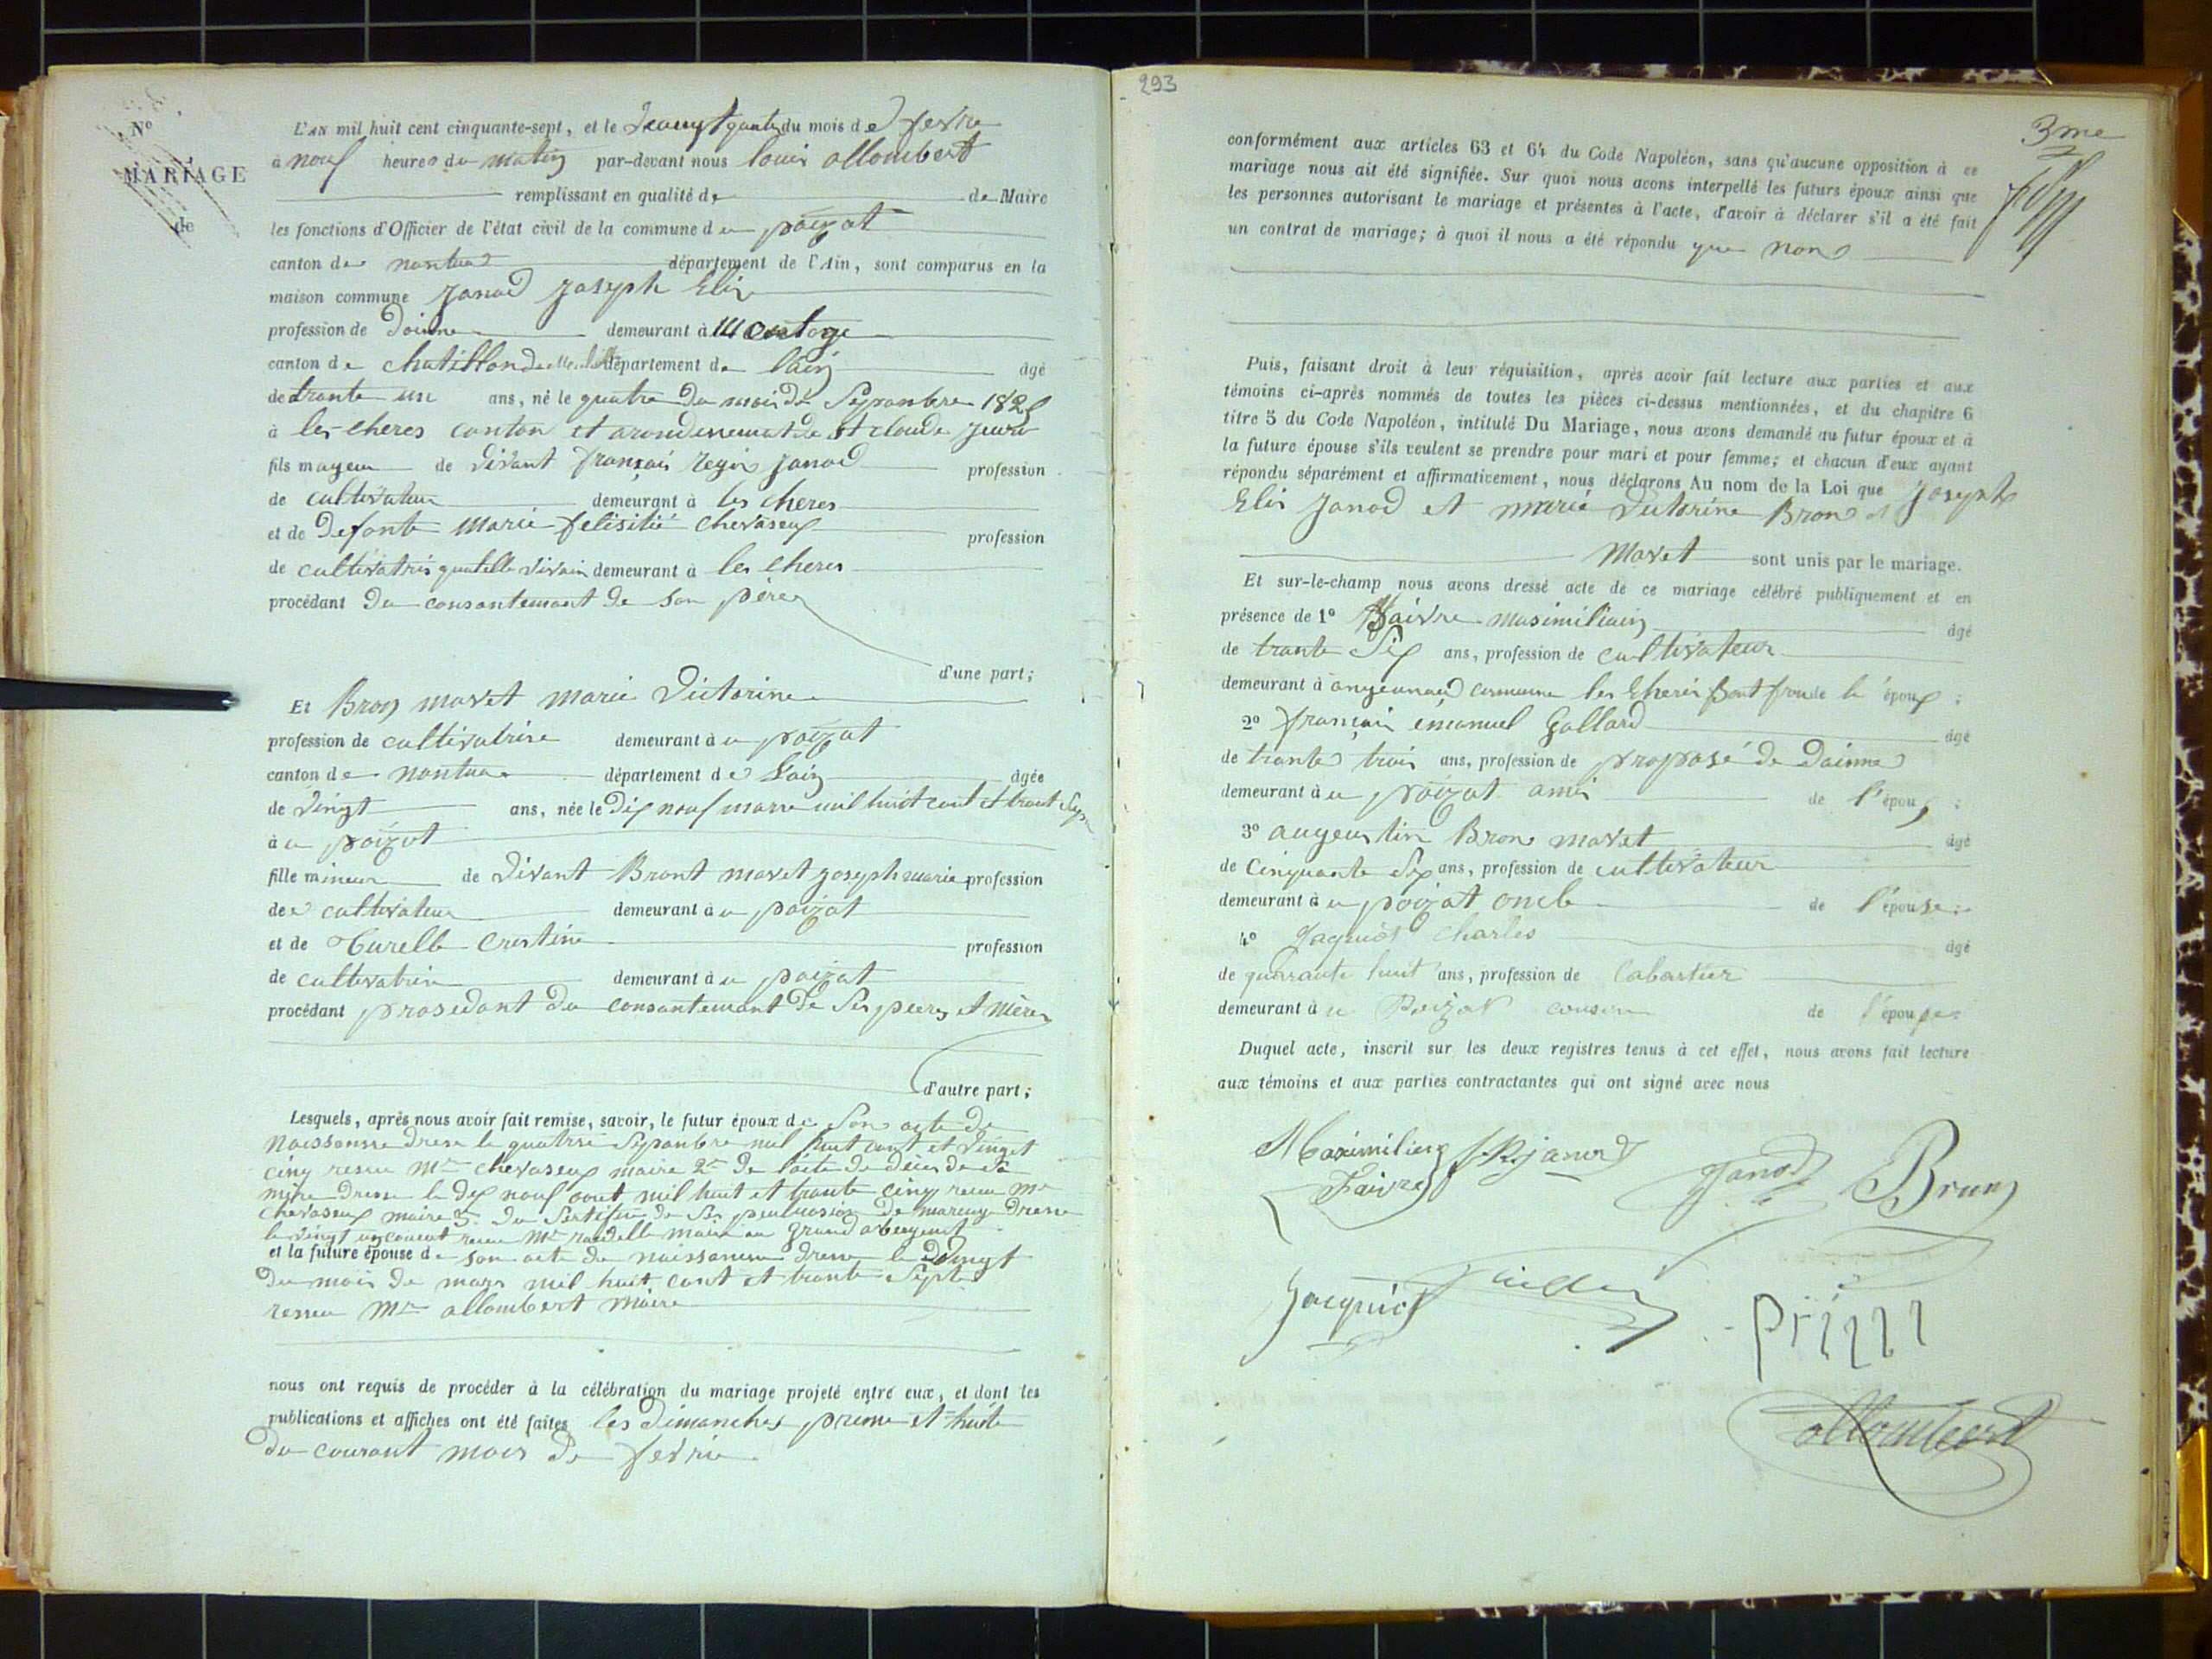 No
MARIAGE
de
L'AN mil huit cent cinquante-sept, et le du mois de fevrie
à nouf heures du matin par-devant nous louis allombert
remplissant en qualité de de Maire
les fonctions d'Officier de l'état civil de la commune du poizat
canton de nantua département de l'Ain, sont comparus en la
maison commune Janod Joseph Elix
profession de Doinne demeurant à Montange
canton de chatillon de département de l'ain âgé
de trante un ans, né le quatre du mois de Sepanbre 1825
à les cheres canton et arondinemat de st claude Jura
fils mageur de vivant françois regis Janod profession
de cultivateur demeurant à les cheres
et de Defonte Marie felisitié chevaseux profession
de cultivatris quatelle vivain demeurant à les cheres
procédant du consantemant de son père
d'une part;
Et Bron mavet marie victorine
profession de cultivatrise demeurant à u poizat
canton de nantua département de l'ain âgée
de vingt ans, née le dix nouf marse mil huit cent et trant Sept
à u poizat
fille mineur de vivant Bront mavet joseph marie profession
de cultivateur demeurant à u poizat
et de Curelle Cristine profession
de cultivatrise demeurant à u poizat
procédant prosedant du consantemant de Ses peres et mères
d'autre part;
Lesquels, après nous avoir fait remise, savoir, le futur époux de Son acte de
naissansse drese le quatrse Sepanbre mil huit cent et vinget
cinq reseu Mr chevaseux maire 2e de l'acte de déces de sa
mère dresse le dix nouf aout mil huit et trante cinq reseu Mr
chevaseux maire 3 du de ses de mareage dresse
le vingt un courat reseu Mr maire au grand abergent
et la future épouse de son acte de naissansse dresse le vingt
du mois de mars mil huit cant et trante Sept
reseu Mr allombert maire
nous ont requis de procéder à la célébration du mariage projeté entre eux, et dont les
publications et affiches ont été faites les dimanches prime et huite
du courant mois de fevrie
293
3me
conformément aux articles 63 et 64 du Code Napoléon, sans qu'aucune opposition à ce
mariage nous ait été signifiée. Sur quoi nous avons interpellé les futurs époux ainsi que
les personnes autorisant le mariage et présentes à l'acte, d'avoir à déclarer s'il a été fait
un contrat de mariage; à quoi il nous a été répondu que non
Puis, faisant droit à leur réquisition, après avoir fait lecture aux parties et aux
témoins ci-après nommés de toutes les pièces ci-dessus mentionnées, et du chapitre 6
titre 5 du Code Napoléon, intitulé Du Mariage, nous avons demandé au futur époux et à
la future épouse s'ils veulent se prendre pour mari et pour femme; et chacun d'eux ayant
répondu séparément et affirmativement, nous déclarons Au nom de la Loi que Joseph
Elix Janod et marie victorine Bron
Mavet sont unis par le mariage.
Et sur-le-champ nous avons dressé acte de ce mariage célébré publiquement et en
présence de 1° Faivre maximiliain âgé
de trante Six ans, profession de cultivateur
demeurant à commune les cheres de l'époux;
2° françois émanuel Gallard âgé
de trante trois ans, profession de proposé de Dainne
demeurant à u poizat ami de l'époux;
3° augeustin Bron mavet âgé
de Cinquante Six ans, profession de cultivateur
demeurant à u poizat oncle de l'épouse;
4° Jaquiot Charles âgé
de quarante huit ans, profession de Cabartier
demeurant à u Poizat cousin de l'épouse
Duquel acte, inscrit sur les deux registres tenus à cet effet, nous avons fait lecture
aux témoins et aux parties contractantes qui ont signé avec nous
Maximilien
Faivre
Janod
Janod
Brun
Jacquiot
allombert